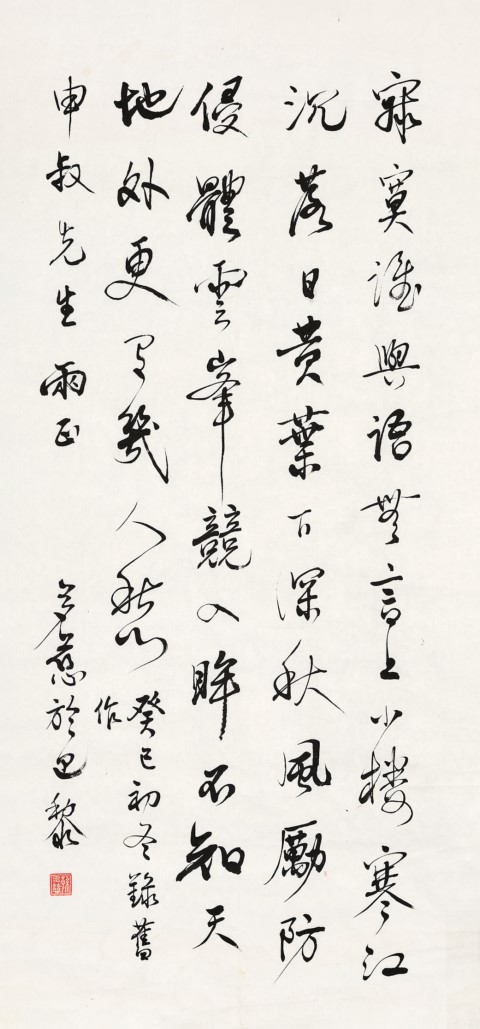 寂寞誰與語無言上小樓寒江
沉落日黄葉下深秋風勵防
侵體雲峯競入眸不知天
地外更有幾人愁
癸巳初冬錄舊
作
申叔先生雨正
多慈於巴黎